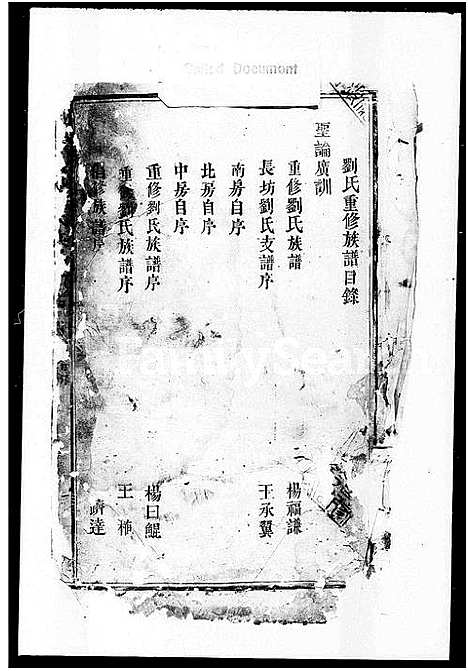 Document
劉氏重修族譜目錄
聖諭廣訓
重修劉氏族譜 楊福謙
長坊劉氏支譜序 王承翼
南房自序
北房自序
中房自序
重修劉氏族譜序 楊日鯤
重修劉氏族譜序 王
修族譜序 達
FamilySearch